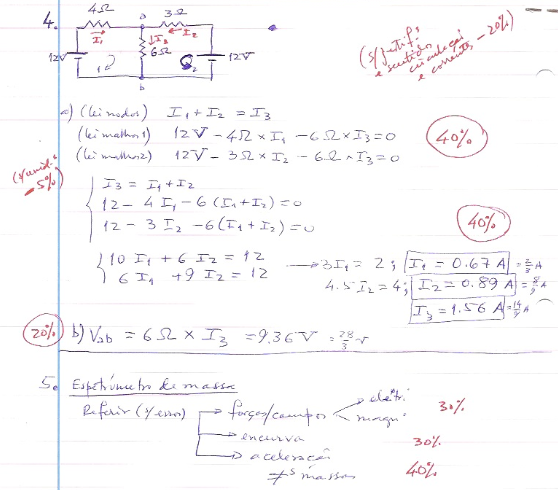 4.
4Ω a 3Ω
I₁ ↓I₃ I₂
6Ω
12V 1 2 12V
b
(s/ justif.
e sentidos
circulação
e correntes - 20%)
a) (lei nodos) I₁ + I₂ = I₃
(lei malha 1) 12V - 4Ω × I₁ - 6Ω × I₃ = 0
40%
(lei malha 2) 12V - 3Ω × I₂ - 6Ω × I₃ = 0
(s/unid.
- 5%)
I₃ = I₁ + I₂
12 - 4 I₁ - 6 (I₁ + I₂) = 0
12 - 3 I₂ - 6 (I₁ + I₂) = 0
40%
10 I₁ + 6 I₂ = 12 → 3I₁ = 2 ; I₁ = 0.67 A = 2/3 A
6 I₁ + 9 I₂ = 12 4.5 I₂ = 4 ; I₂ = 0.89 A = 8/9 A
I₃ = 1.56 A = 14/9 A
20% b) Vab = 6Ω × I₃ = 9.36 V = 28/3 V
5. Espetrómetro de massa
Referir (s/ erros) → forças/campos → elétri
→ magn 30%
→ encurva 30%
→ aceleração
≠s massas 40%